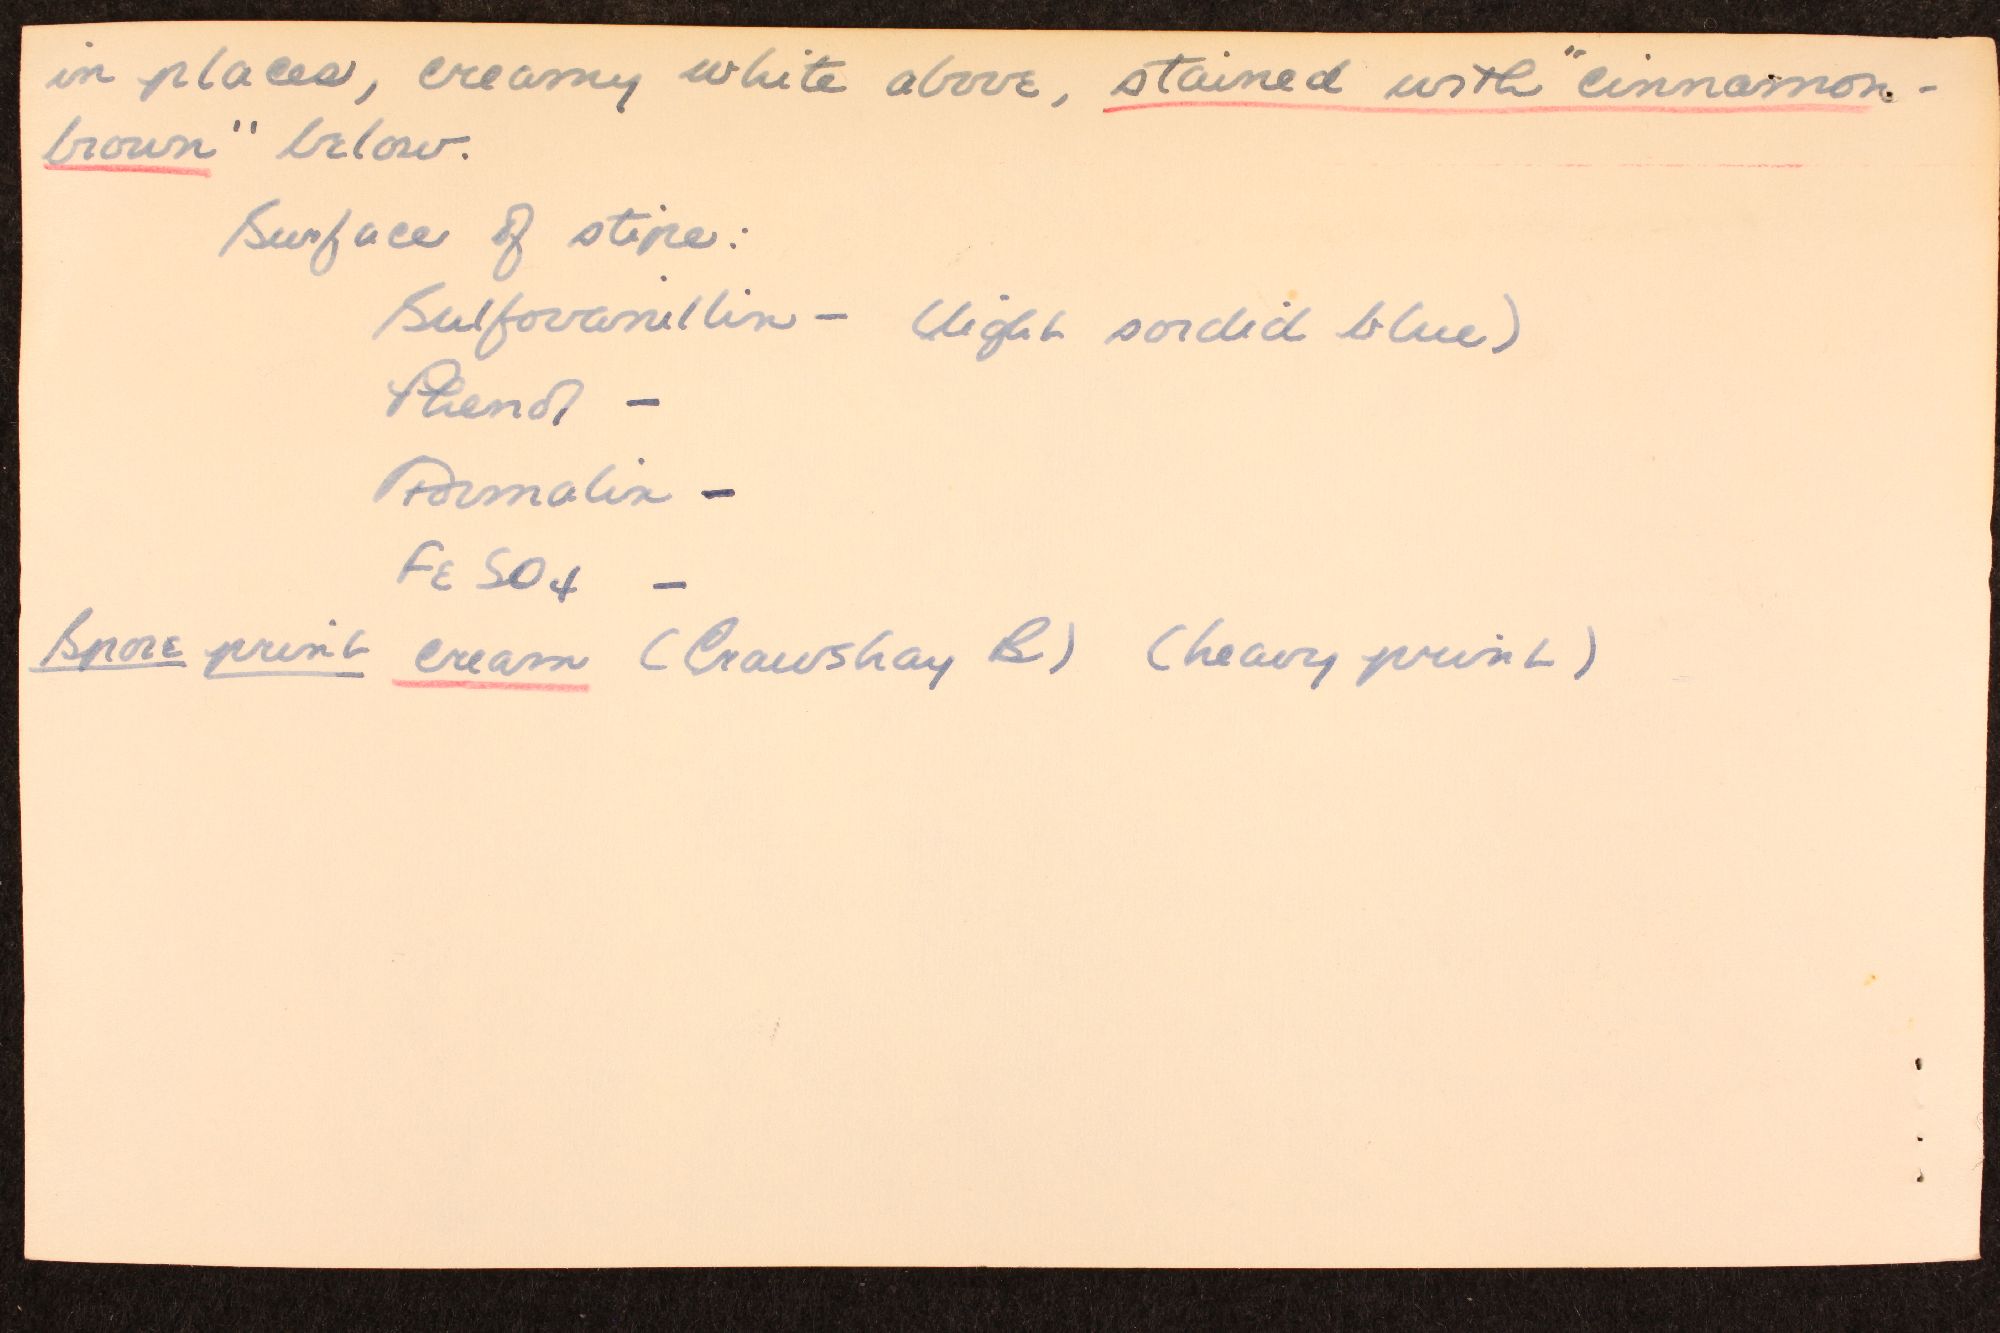 in places, creamy white above, stained with "cinnamon-
brown" below.
Surface of stipe:
Sulfovanillin - (light sordid blue)
Phenol -
Formalin -
FeSO4 -
Spore print cream (Crawshay B) (heavy print)